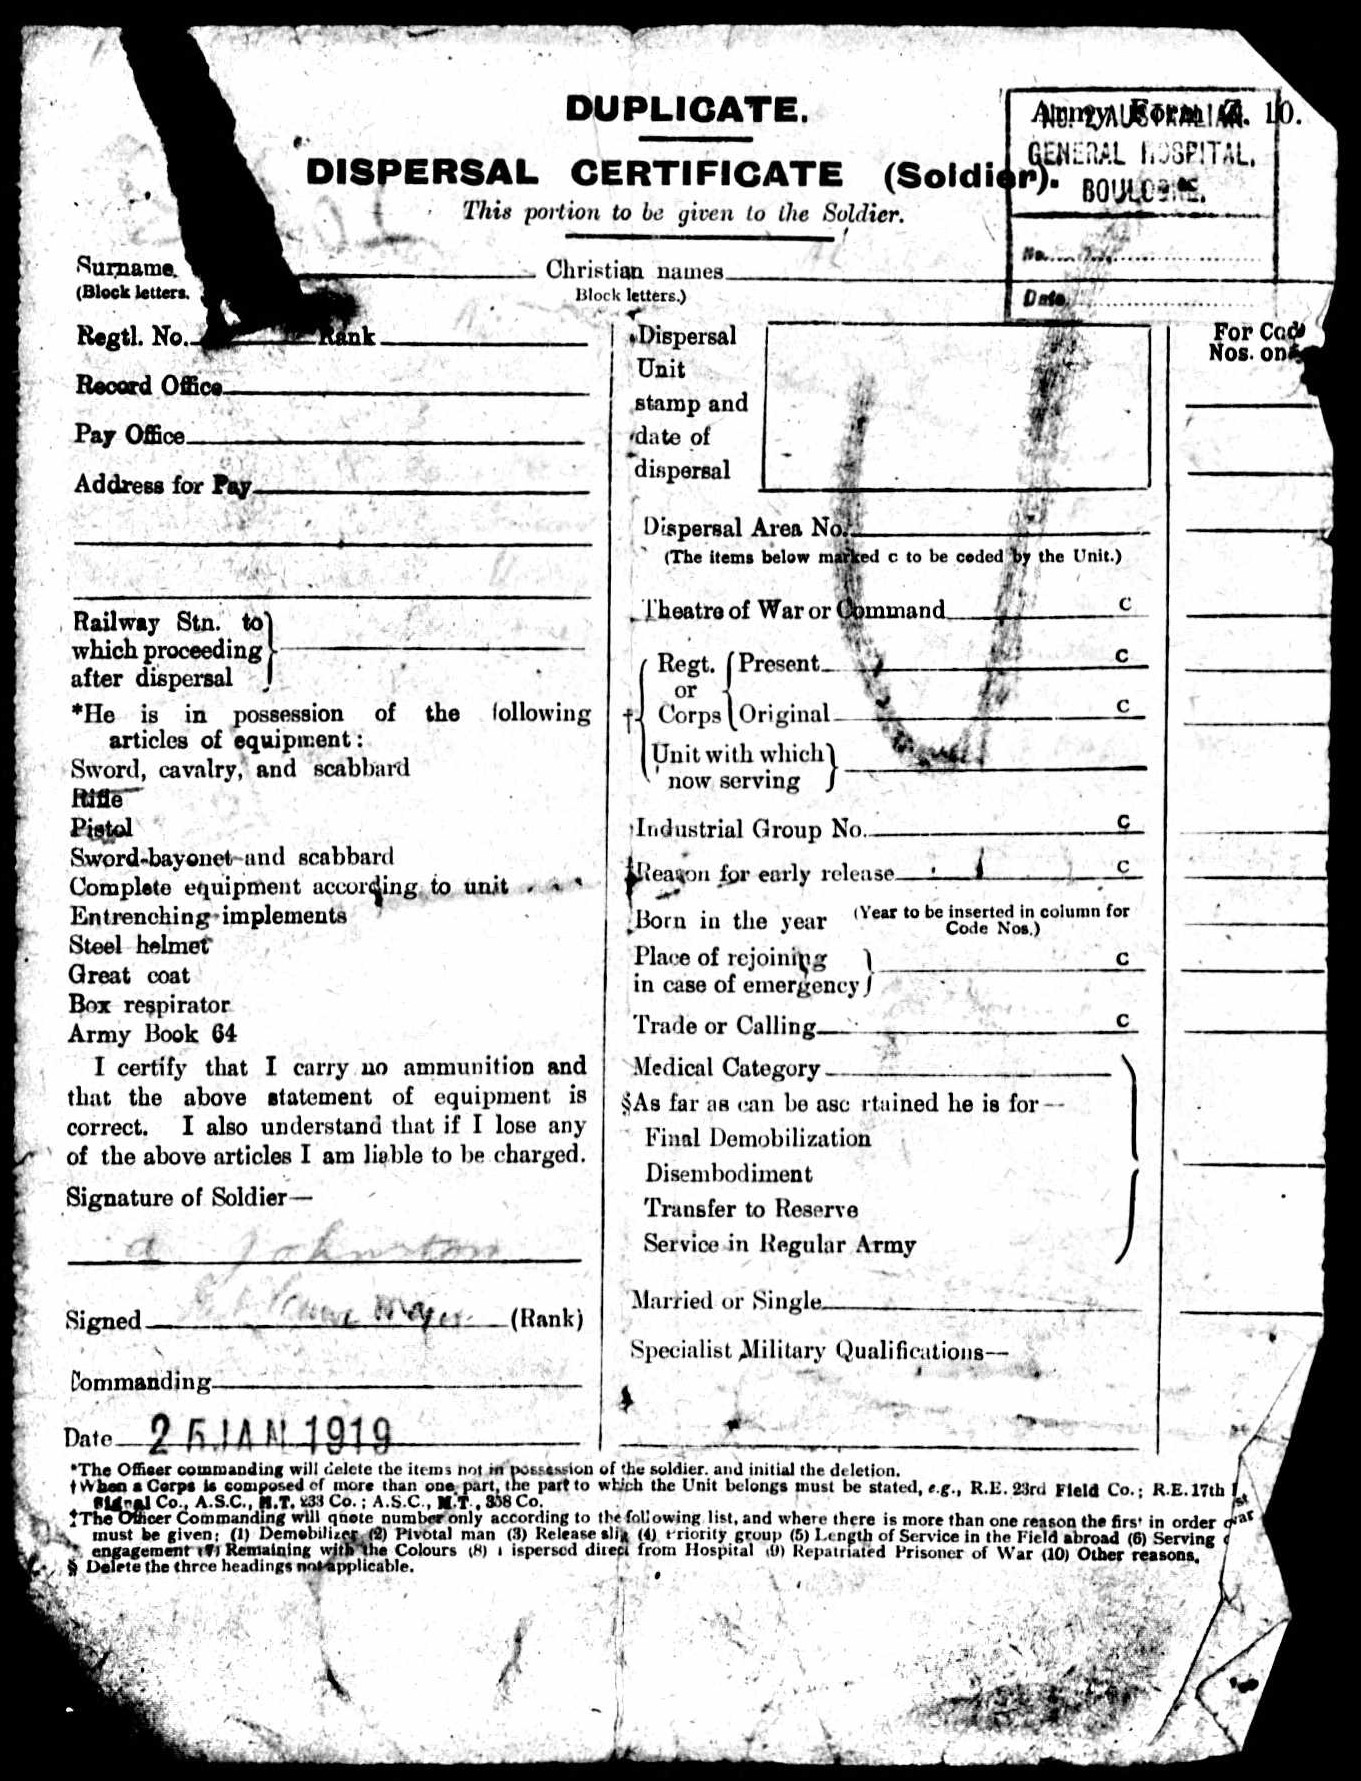 DUPLICATE.
Army Form Z. 10.
No. 2 AUSTRALIAN
GENERAL HOSPITAL,
BOULOGNE.
No.
Date
DISPERSAL CERTIFICATE (Soldier).
This portion to be given to the Soldier.
Surname
(Block letters.
Christian names
Block letters.)
Regtl. No. Rank
Record Office
Pay Office
Address for Pay
Railway Stn. to
which proceeding
after dispersal
*He is in possession of the following
articles of equipment:
Sword, cavalry, and scabbard
Rifle
Pistol
Sword-bayonet and scabbard
Complete equipment according to unit
Entrenching implements
Steel helmet
Great coat
Box respirator
Army Book 64
I certify that I carry no ammunition and
that the above statement of equipment is
correct. I also understand that if I lose any
of the above articles I am liable to be charged.
Signature of Soldier—
a Johnston
Signed Major (Rank)
Commanding
Date 25 JAN 1919
Dispersal
Unit
stamp and
date of
dispersal
Dispersal Area No.
(The items below marked c to be coded by the Unit.)
Theatre of War or Command C
† Regt. or Corps
Present C
Original C
Unit with which
now serving
Industrial Group No. C
‡Reason for early release C
Born in the year (Year to be inserted in column for
Code Nos.)
Place of rejoining C
in case of emergency
Trade or Calling C
Medical Category
§As far as can be asc rtained he is for—
Final Demobilization
Disembodiment
Transfer to Reserve
Service in Regular Army
Married or Single
Specialist Military Qualifications—
For Cod
Nos. on
*The Officer commanding will delete the items not in possession of the soldier. and initial the deletion.
†When a Corps is composed of more than one part, the part to which the Unit belongs must be stated, e.g., R.E. 23rd Field Co.; R.E. 17th
Signal Co., A.S.C., M.T. 233 Co.; A.S.C., M.T., 358 Co.
‡The Officer Commanding will quote number only according to the following list, and where there is more than one reason the first in order
must be given; (1) Demobilizer (2) Pivotal man (3) Release slip (4) Priority group (5) Length of Service in the Field abroad (6) Serving
engagement (7) Remaining with the Colours (8) ispersed direct from Hospital (9) Repatriated Prisoner of War (10) Other reasons.
§ Delete the three headings not applicable.